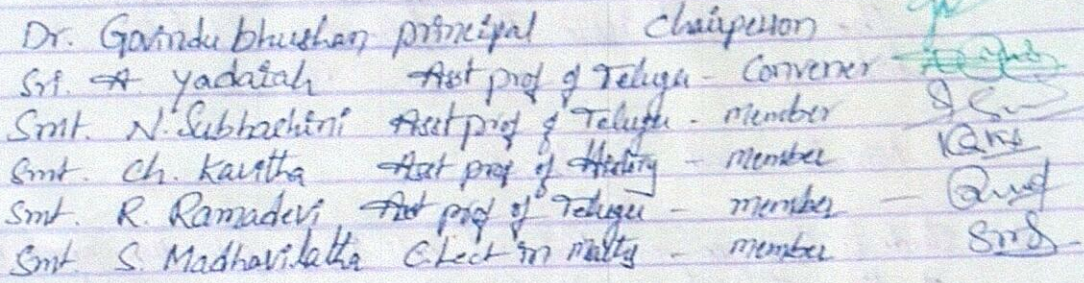 Dr. Govindu bhushan principal Chairperson
Sri. A. yadaiah Asst prof of Telugu - Convener
Smt. N. Subhashini Asst prof of Telugu - member
Smt. Ch. Kavitha Asst prof of History - member
Smt. R. Ramadevi Asst prof of Telugu - member -
Smt. S. Madhavilatha C.Lect in - member